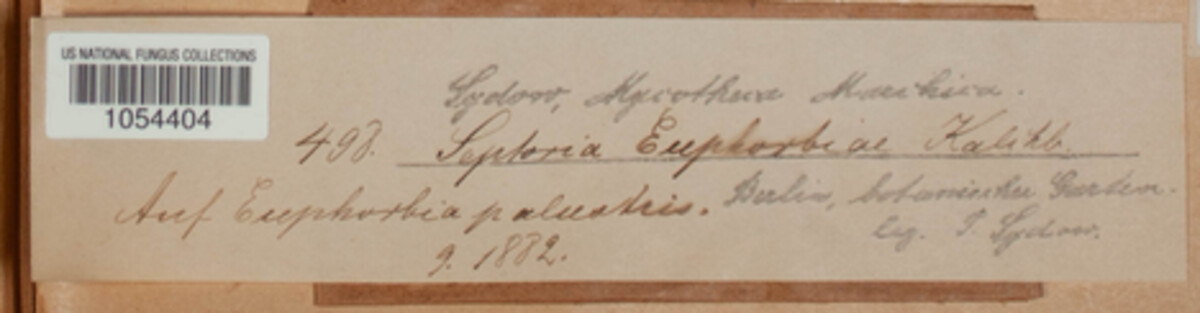 US NATIONAL FUNGUS COLLECTIONS
1054404
Sydow, Mycotheca Marchica.
498. Septoria Euphorbiae Kalchb.
Auf Euphorbia palustris. Berlin, botanischer Garten.
9. 1882. leg. P. Sydow.